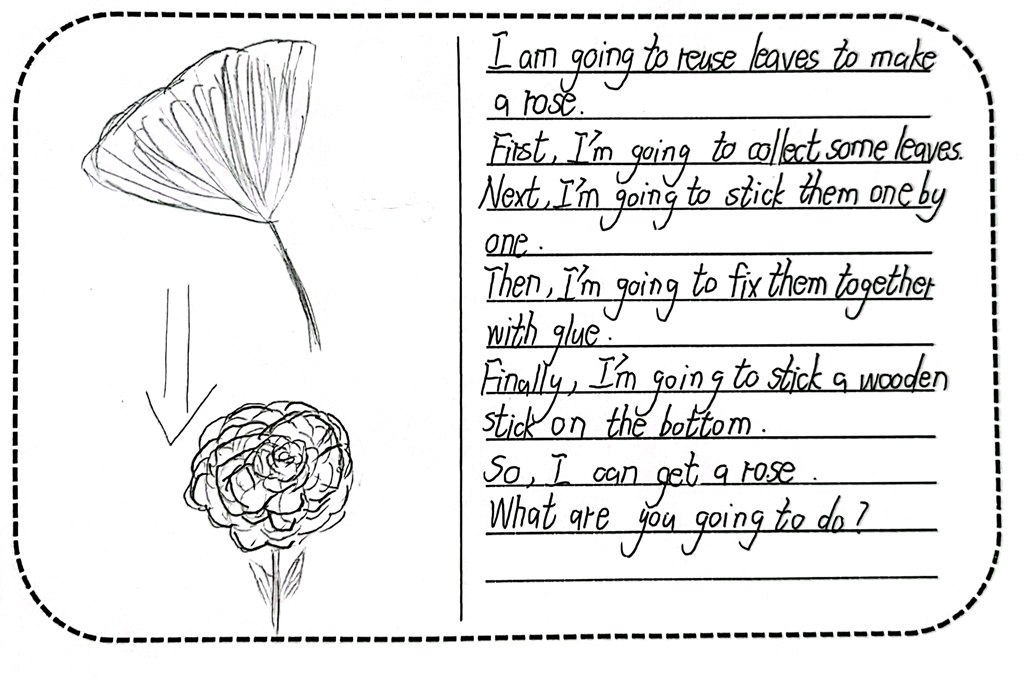 I am going to reuse leaves to make
a rose.
First, I'm going to collect some leaves.
Next, I'm going to stick them one by
one.
Then, I'm going to fix them together
with glue.
Finally, I'm going to stick a wooden
stick on the bottom.
So, I can get a rose.
What are you going to do?